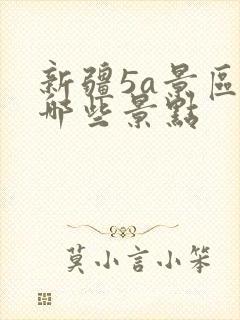 新疆5a景區
哪些景點
莫小言小笨